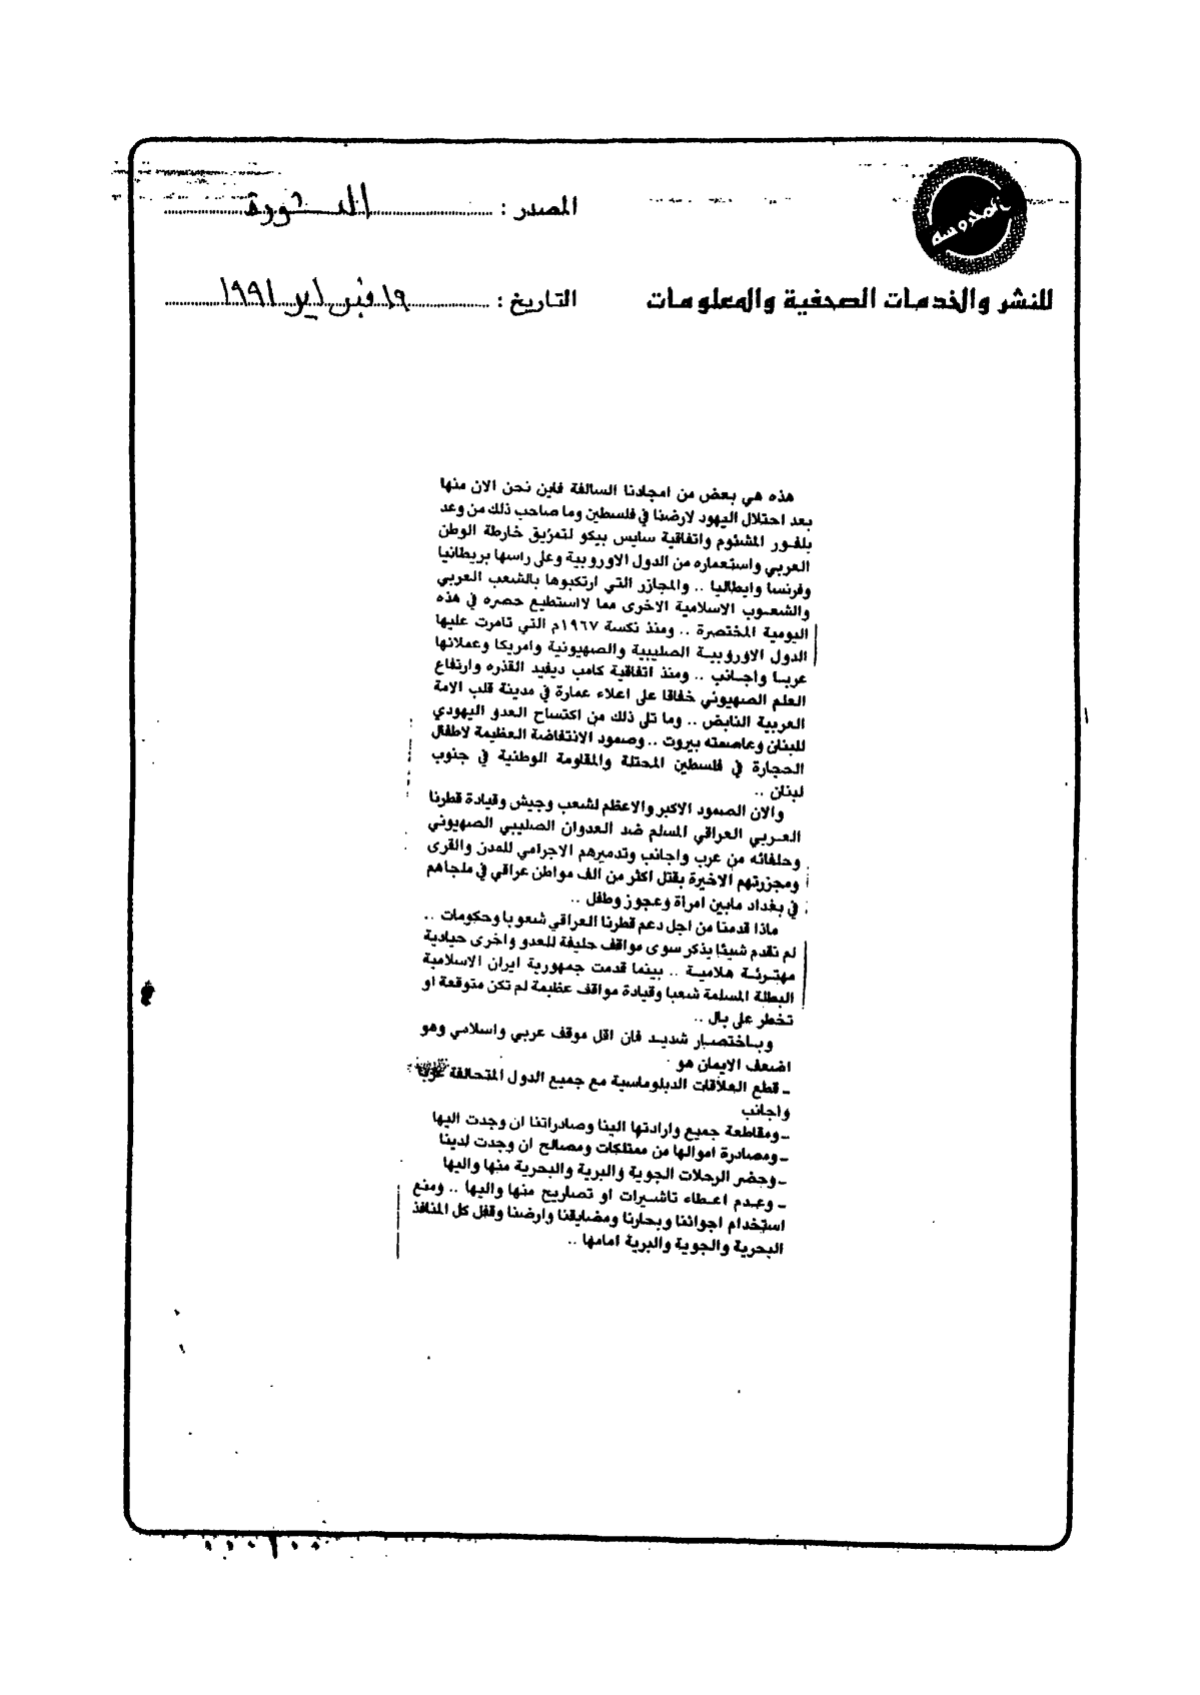 المحروسة
المصدر : الثورة
للنشر والخدمات الصحفية والمعلومات
التاريخ : ١٩ فبراير ١٩٩١
هذه هي بعض من امجادنا السالفة فاين نحن الان منها
بعد احتلال اليهود لارضنا في فلسطين وما صاحب ذلك من وعد
بلفور المشئوم واتفاقية سايس بيكو لتمزيق خارطة الوطن
العربي واستعماره من الدول الاوروبية وعلى راسها بريطانيا
وفرنسا وايطاليا .. والمجازر التي ارتكبوها بالشعب العربي
والشعوب الاسلامية الاخرى مما لااستطيع حصره في هذه
اليومية المختصرة .. ومنذ نكسة ١٩٦٧م التي تامرت عليها
الدول الاوروبية الصليبية والصهيونية وامريكا وعملائها
عربا واجانب .. ومنذ اتفاقية كامب ديفيد القذره وارتفاع
العلم الصهيوني خفاقا على اعلاء عمارة في مدينة قلب الامة
العربية النابض .. وما تلى ذلك من اكتساح العدو اليهودي
للبنان وعاصمته بيروت .. وصمود الانتفاضة العظيمة لاطفال
الحجارة في فلسطين المحتلة والمقاومة الوطنية في جنوب
لبنان ..
والان الصمود الاكبر والاعظم لشعب وجيش وقيادة قطرنا
العربي العراقي المسلم ضد العدوان الصليبي الصهيوني
وحلفائه من عرب واجانب وتدميرهم الاجرامي للمدن والقرى
ومجزرتهم الاخيرة بقتل اكثر من الف مواطن عراقي في ملجاهم
في بغداد مابين امراة وعجوز وطفل ..
ماذا قدمنا من اجل دعم قطرنا العراقي شعوبا وحكومات ..
لم نقدم شيئا يذكر سوى مواقف حليفة للعدو واخرى حيادية
مهترئة هلامية .. بينما قدمت جمهورية ايران الاسلامية
البطلة المسلمة شعبا وقيادة مواقف عظيمة لم تكن متوقعة او
تخطر على بال ..
وباختصار شديد فان اقل موقف عربي واسلامي وهو
اضعف الايمان هو
ـ قطع العلاقات الدبلوماسية مع جميع الدول المتحالفة عربا
واجانب
ـ ومقاطعة جميع وارادتها الينا وصادراتنا ان وجدت اليها
ـ ومصادرة اموالها من ممتلكات ومصالح ان وجدت لدينا
ـ وحضر الرحلات الجوية والبرية والبحرية منها واليها
ـ وعدم اعطاء تاشيرات او تصاريح منها واليها .. ومنع
استخدام اجوائنا وبحارنا ومضايقنا وارضنا وقفل كل المنافذ
البحرية والجوية والبرية امامها ..